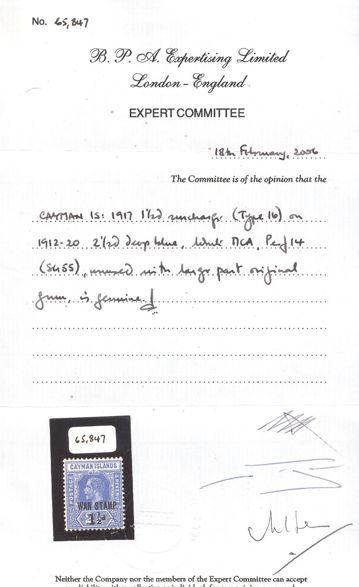 No. 65,847
B. P. A. Expertising Limited
London - England
EXPERT COMMITTEE
18th February, 2006
The Committee is of the opinion that the
CAYMAN IS: 1917 1½d surcharge (Type 16) on
1912-20 2½d deep blue, Wmk MCA, Perf 14
(SG55), unused with large part original
gum, is genuine.
65,847
CAYMAN ISLANDS
POSTAGE
WAR STAMP
1½d
Neither the Company nor the members of the Expert Committee can accept